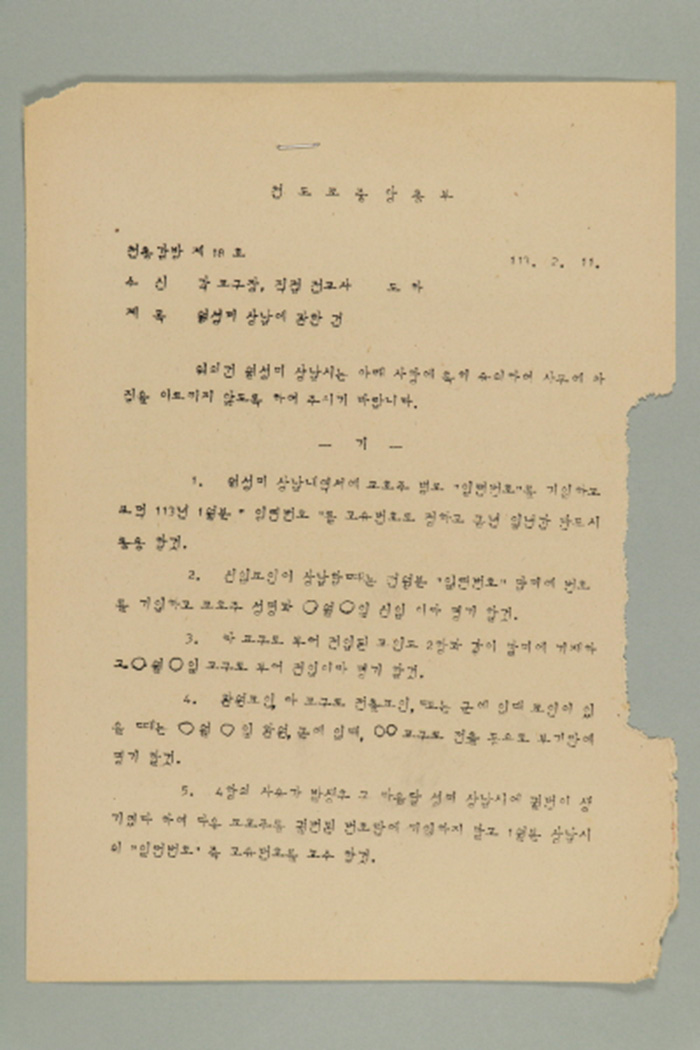 천도교중앙총부
천총감발 제 18 호
113. 2. 11.
수 신 각 교구장, 직접 전교사 도하
제 목 월성미 상납에 관한 건
위의건 월성미 상납시는 아래 사항에 유의하여 사무에 차
질을 이르키지 않도록 하여 주시기 바랍니다.
— 기 —
1. 월성미 상납내역서에 교호주 별로 "일련번호"를 기입하고
포덕 113년 1월분 " 일련번호 "를 고유번호로 정하고 금년 일년간 반드시
통용 할것.
2. 신입교인이 상납할때는 전월분 "일련번호" 말미에 번호
를 기입하고 교호주 성명과 ○월 ○일 신입 이라 명기 할것.
3. 타 교구로 부터 전입된 교인도 2항과 같이 말미에 기재하
고 ○월 ○일 교구로 부터 전입이라 명기 할것.
4. 환원교인, 타 교구로 전출교인, 또는 군에 입대 교인이 있
을 때는 ○월 ○일 환원, 군에 입대, ○○교구로 전출 등으로 부기란에
명기 할것.
5. 4항의 사유가 발생후 그 다음달 성미 상납시에 궐번이 생
기였다 하여 다음 교호주를 궐번된 번호란에 기입하지 말고 1월분 상납시
의 "일련번호" 즉 고유번호를 고수 할것.